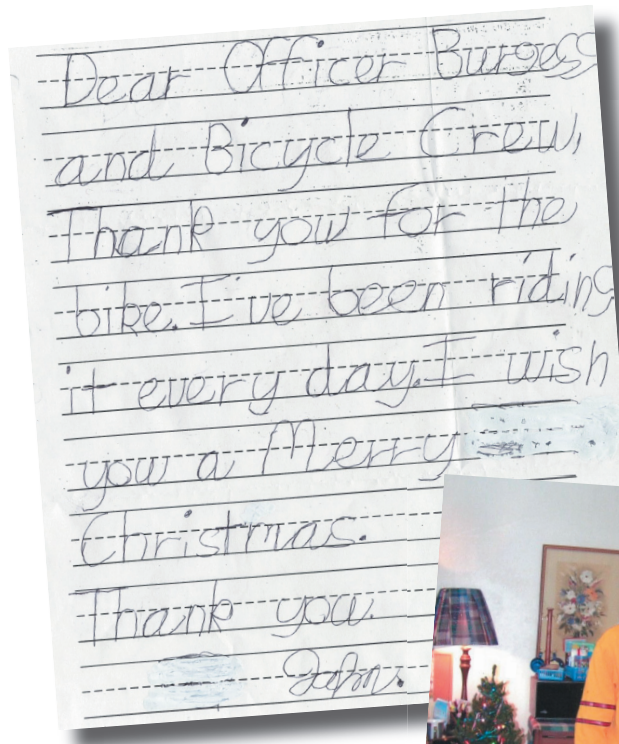 Dear Officer Burgess
and Bicycle Crew,
Thank you for the
bike. I've been riding
it every day. I wish
you a Merry
Christmas.
Thank you.
John.